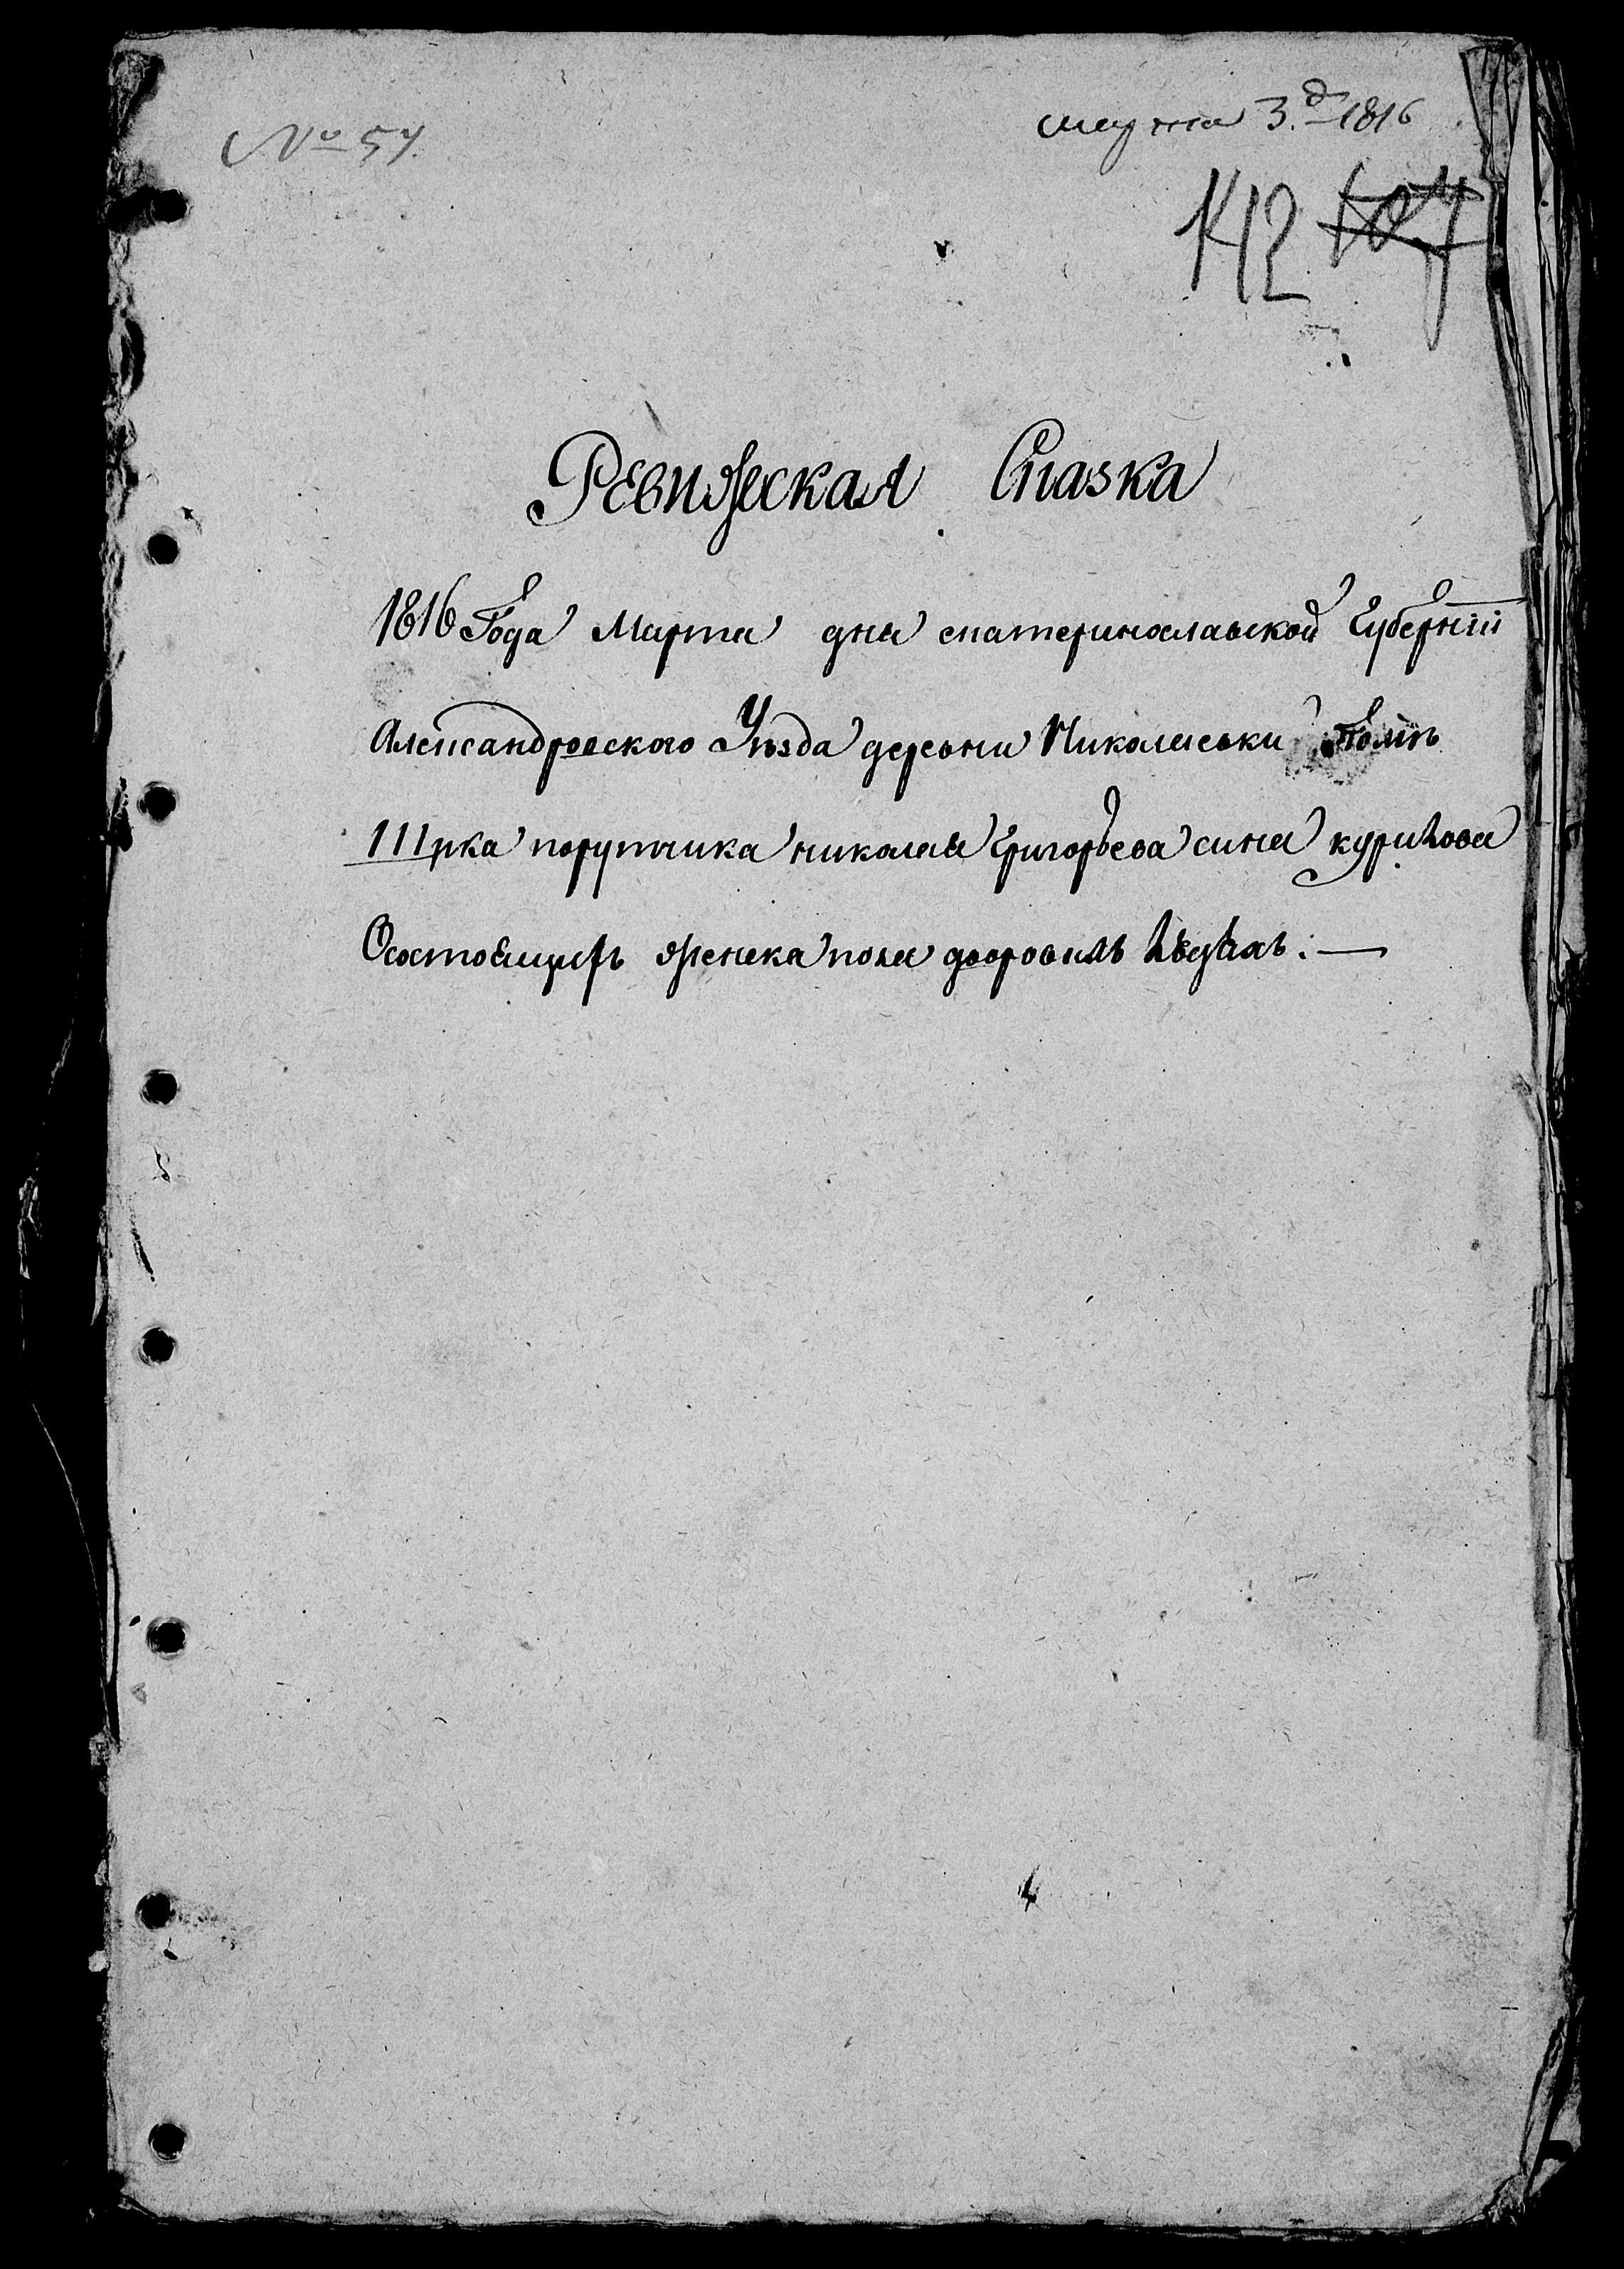 № 57.
марта 3.го 1816
142 107
Ревижская Сказка
1816 Года Марта дня екатеринославской Губернiи
Александровского Уѣзда деревни Николаевки
порутчика николая Григорьева сина курикова
Осостоящихъ женска пола дворовихъ